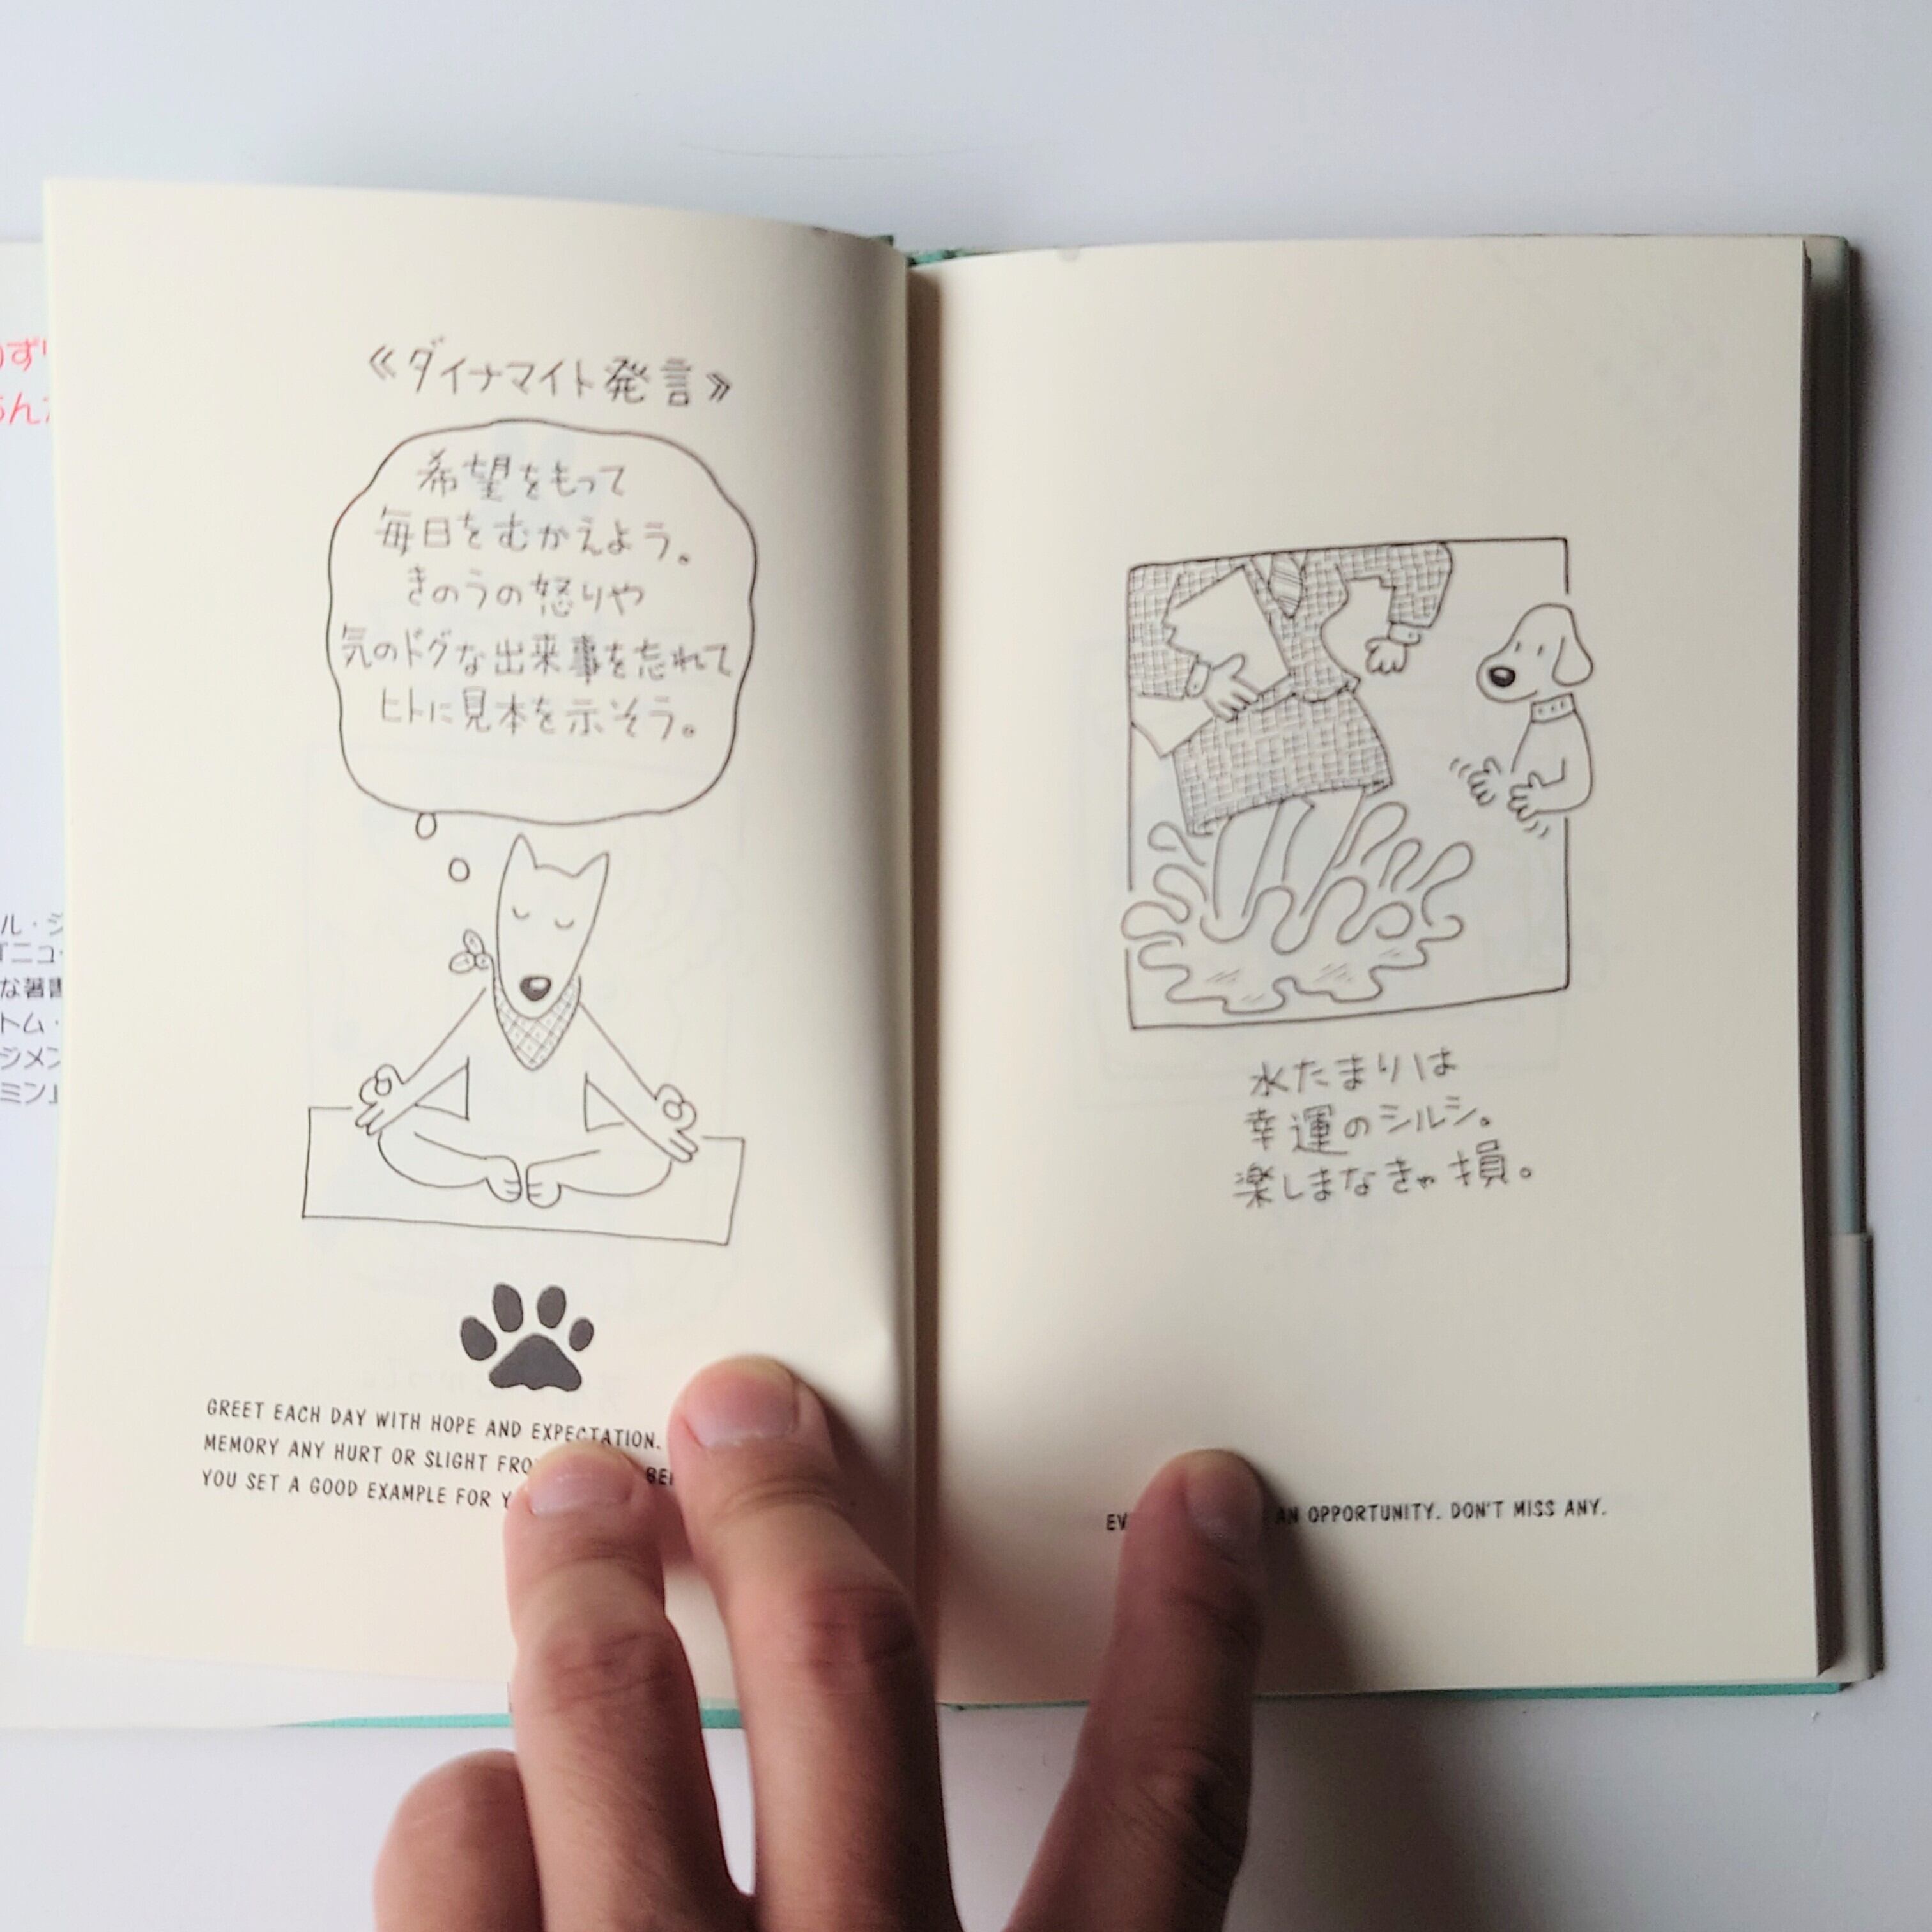 《ダイナマイト発言》
希望をもって
毎日をむかえよう。
きのうの怒りや
気のドグな出来事を忘れて
ヒトに見本を示そう。
GREET EACH DAY WITH HOPE AND EXPECTATION.
MEMORY ANY HURT OR SLIGHT
YOU SET A GOOD EXAMPLE FOR
水たまりは
幸運のシルシ。
楽しまなきゃ損。
AN OPPORTUNITY. DON'T MISS ANY.
ル・ジ
な著書
トム・
ジメン
ミン」